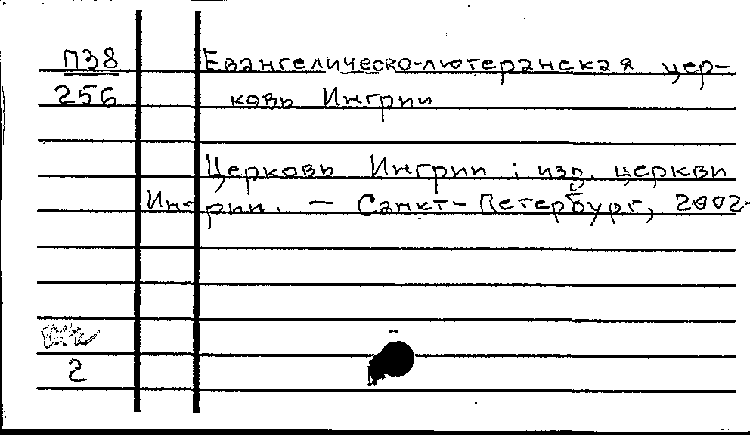 П38
256
Евангелическо-лютеранская цер-
ковь Ингрии
Церковь Ингрии : изд. церкви
Ингрии. — Санкт-Петербург, 2002-
2